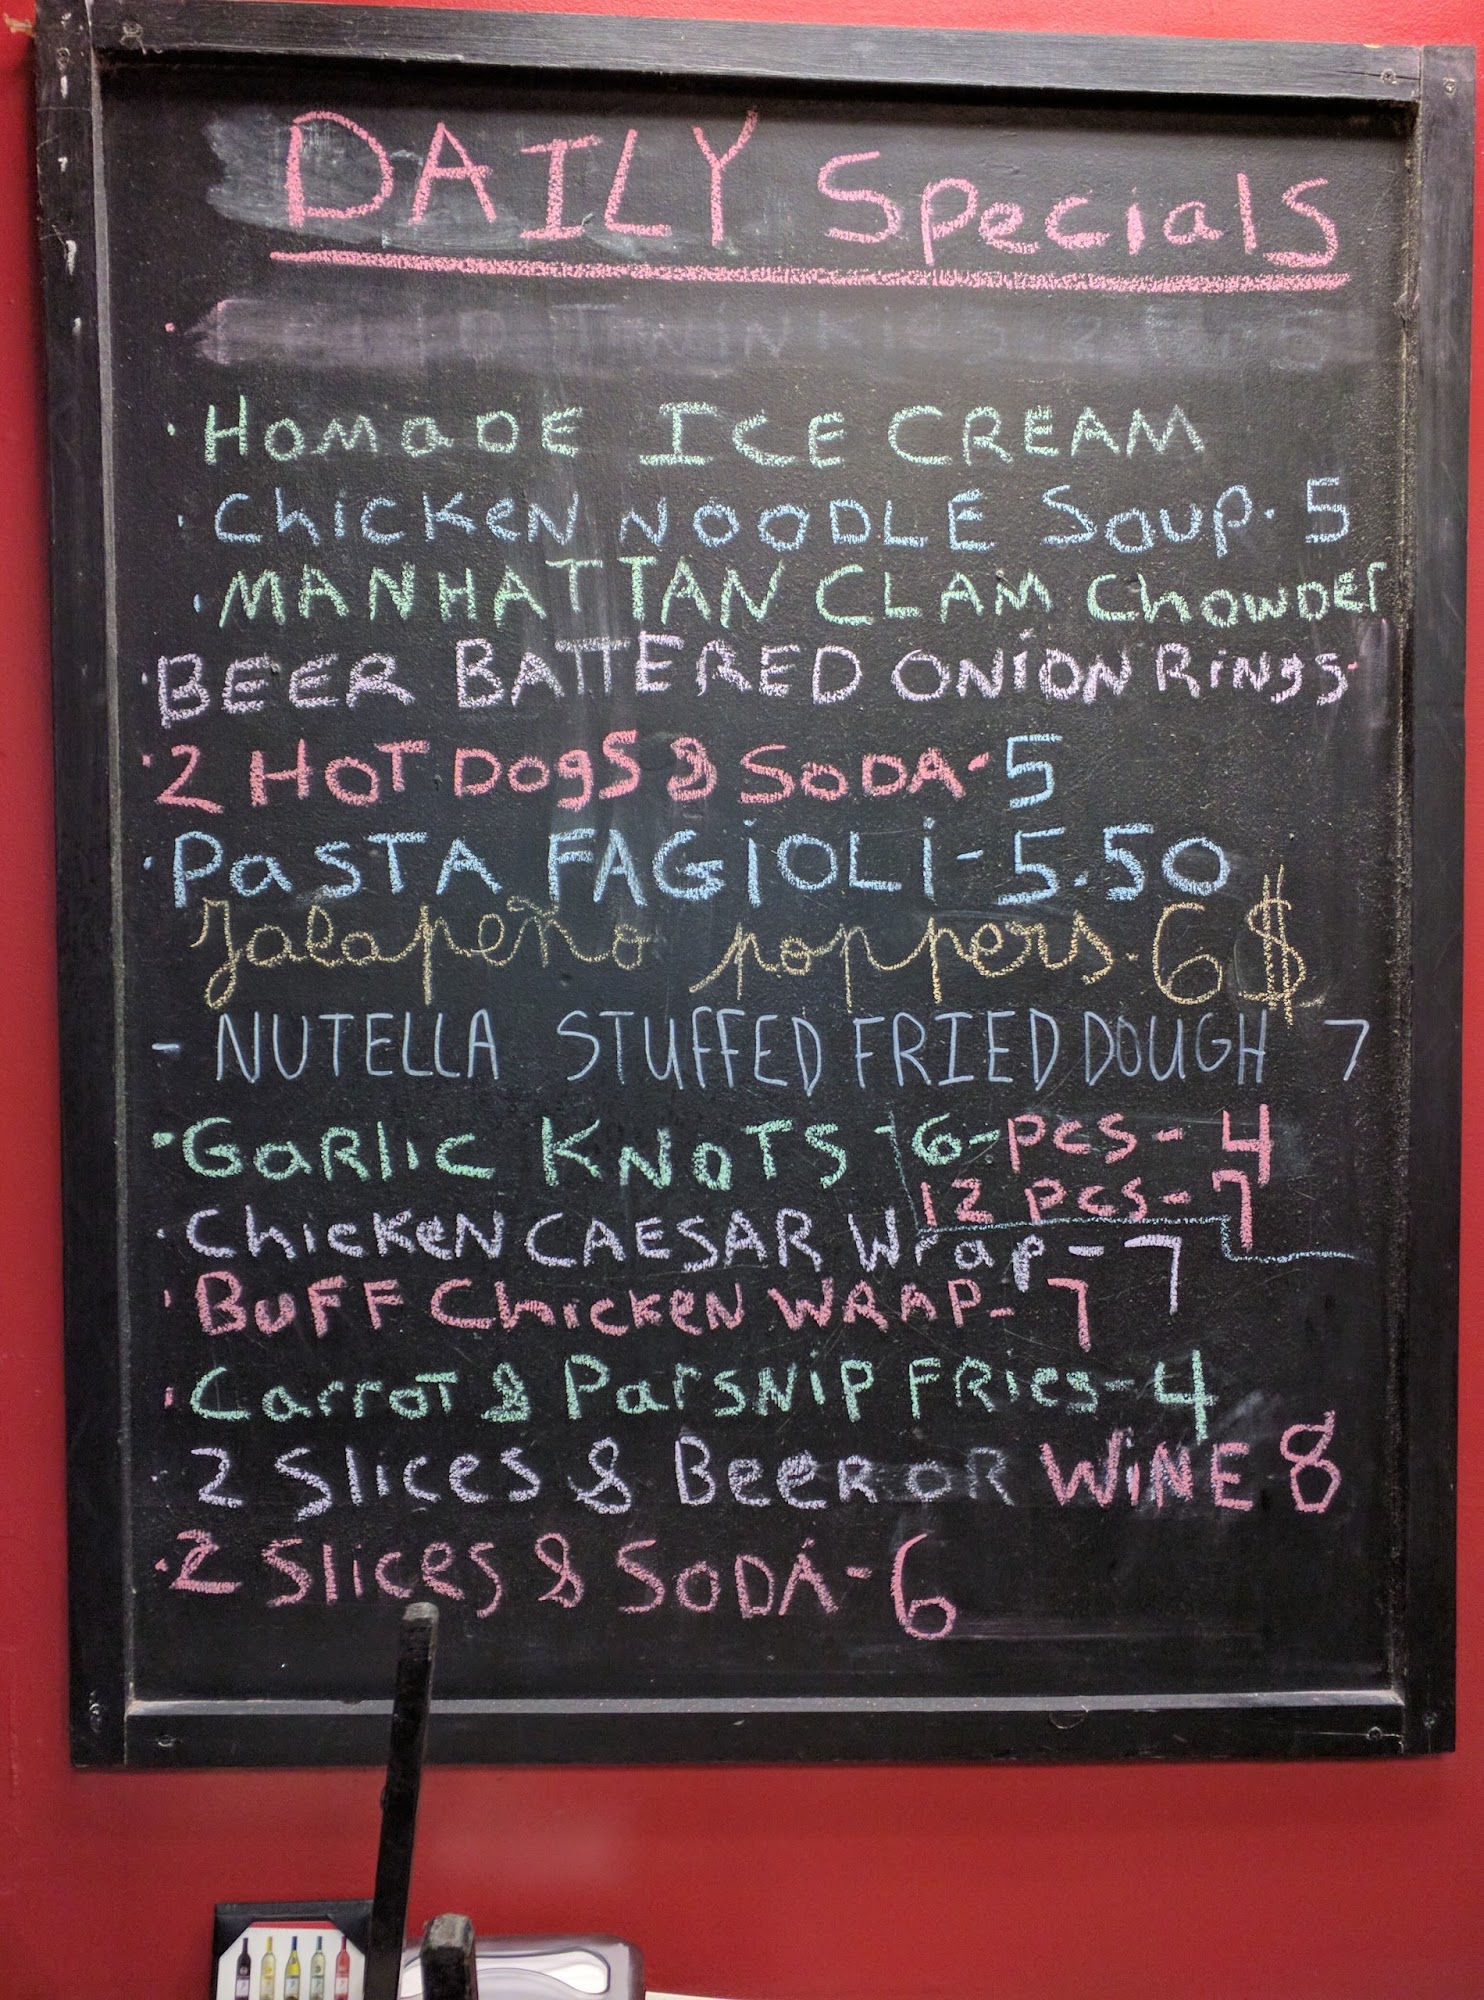 DAILY Specials
TWINKies
· HomaDE ICE CREAM
· ChicKeN NOODLE Soup. 5
· MANHATTAN CLAM ChowDEr
· BEER BATTERED ONiON RiNgs-
· 2 HoT DogS & SoDA- 5
· PaSTA FAGiOLi - 5.50
Jalapeño poppers. 6$
- NUTELLA STUFFED FRIED DOUGH 7
· GaRlic KNoTS - 6- pcs - 4
12 pcs - 7
· ChicKeN CAESAR Wrap - 7
· BuFF ChicKeN WRAP- 7
· CarroT & ParSNiP FRies - 4
· 2 Slices & BeeR OR WiNE 8
· 2 Slices & SODA - 6